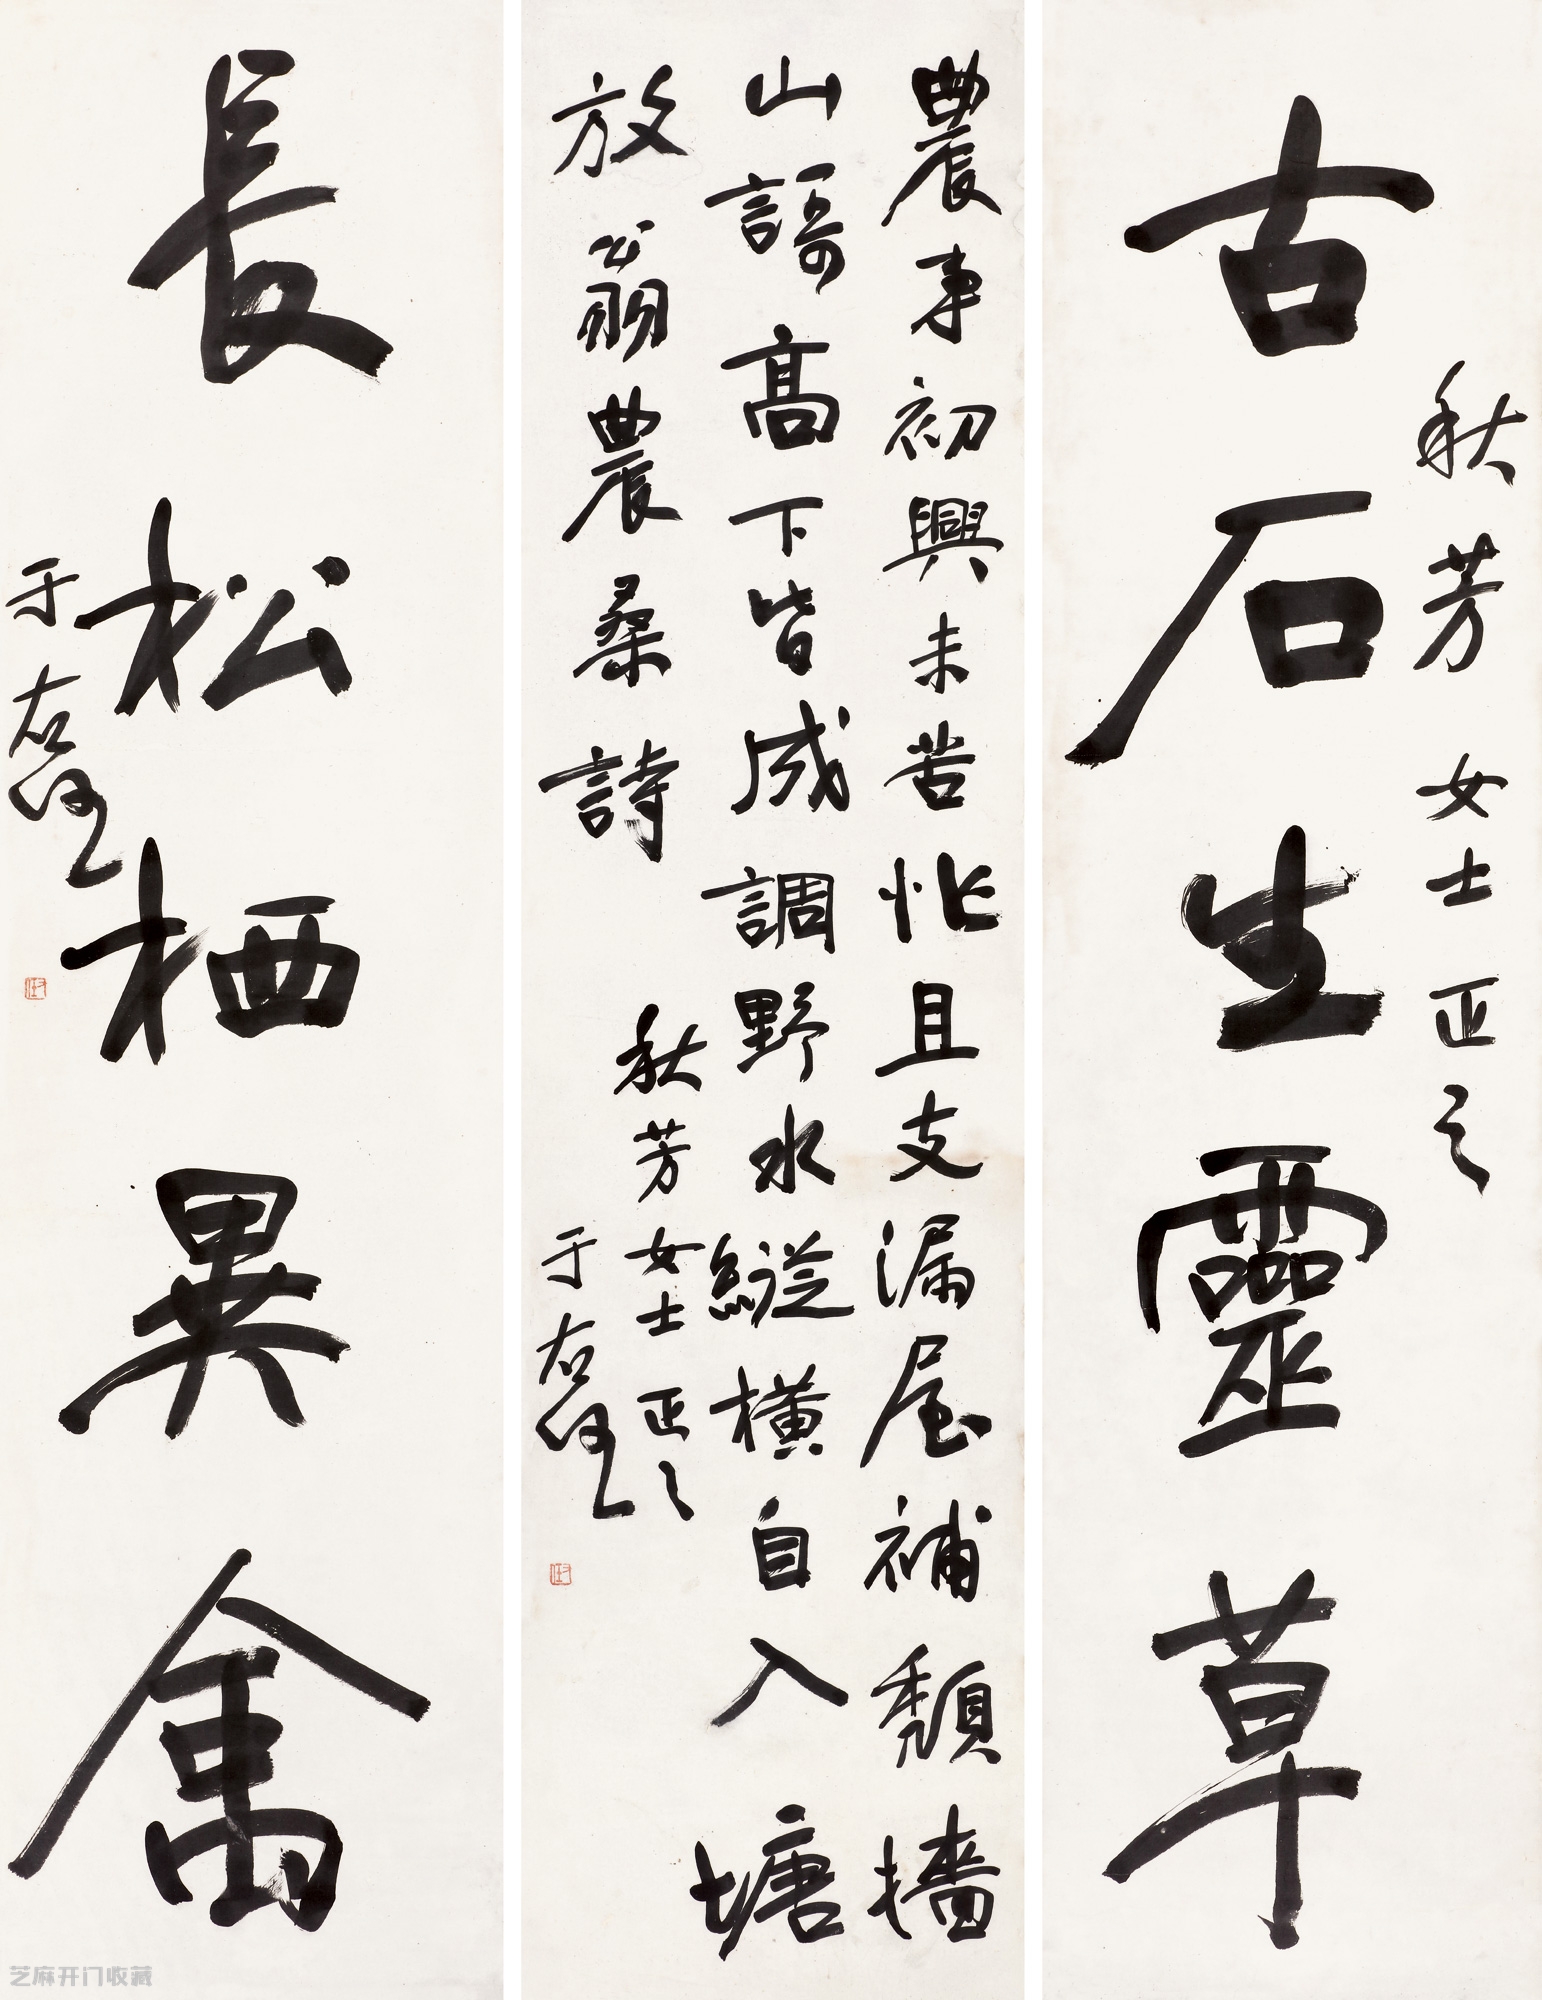 古石生靈草
秋芳女士正之
農事初興未苦忙且支漏屋補頹墻
山謌高下皆成調野水縱橫自入塘
放翁農桑詩
秋芳女士正之
于右任
長松栖異禽
于右任
右任
右任
芝麻开门收藏